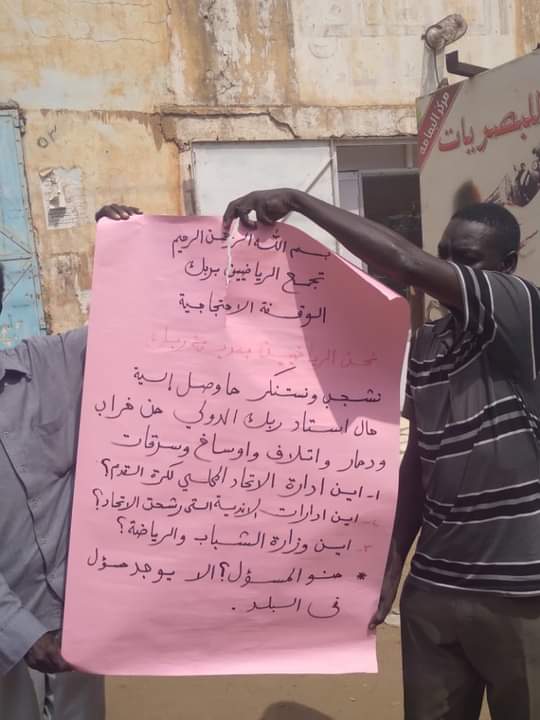 للبصريات
مركز النعامة
بسم الله الرحمن الرحيم
تجمع الرياضيين بربك
الوقفة الاحتجاجية
نحن الرياضيين
نشجب ونستنكر ما وصل إلية
حال استاد ربك الدولي من خراب
ودمار واتلاف واوساغ وسرقات
١- اين ادارة الاتحاد المحلي لكرة القدم؟
٢- اين ادارات الاندية التى رشحت الاتحاد؟
٣- اين وزارة الشباب والرياضة؟
* منو المسؤل؟ الا يوجد مسؤل
فى البلد.